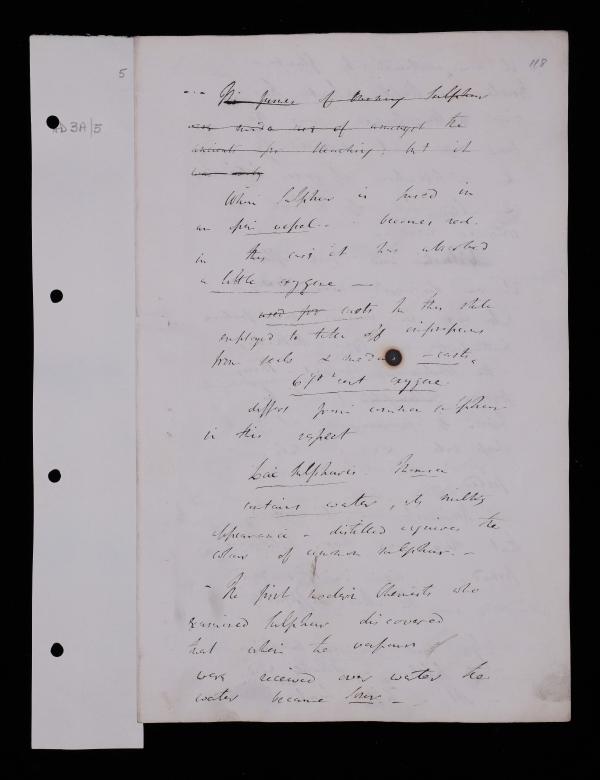 5
118
AD3A/5
The fumes of burning Sulphur
was made use of amongst the
ancients for bleaching; but it
was only
When Sulphur is fused in
an open vessel - becomes red.
in this case it has absorbed
a little oxygene —
used for casts In this state
employed to take off impressions
from seals & - casts
6 pr cent oxygene.
differs from common sulphur
in this respect
Lac Sulphuris.
contains water, its milky
appearance - distilled acquires the
colour of common sulphur. -
- The first modern Chemists who
examined Sulphur discovered
that when the vapours of
were received over water the
water became sour. -